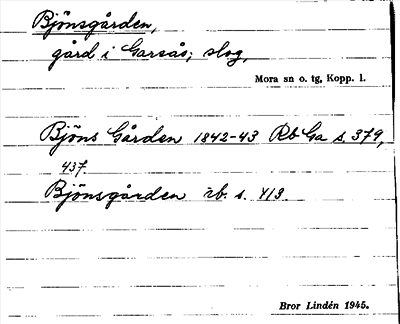 Björnsgården,
gård i Garsås; slog,
Mora sn o. tg, Kopp. l.
Björns Gården 1842-43 Rb Ga s. 379,
437.
Björnsgården rb. s. 413.
Bror Lindén 1945.